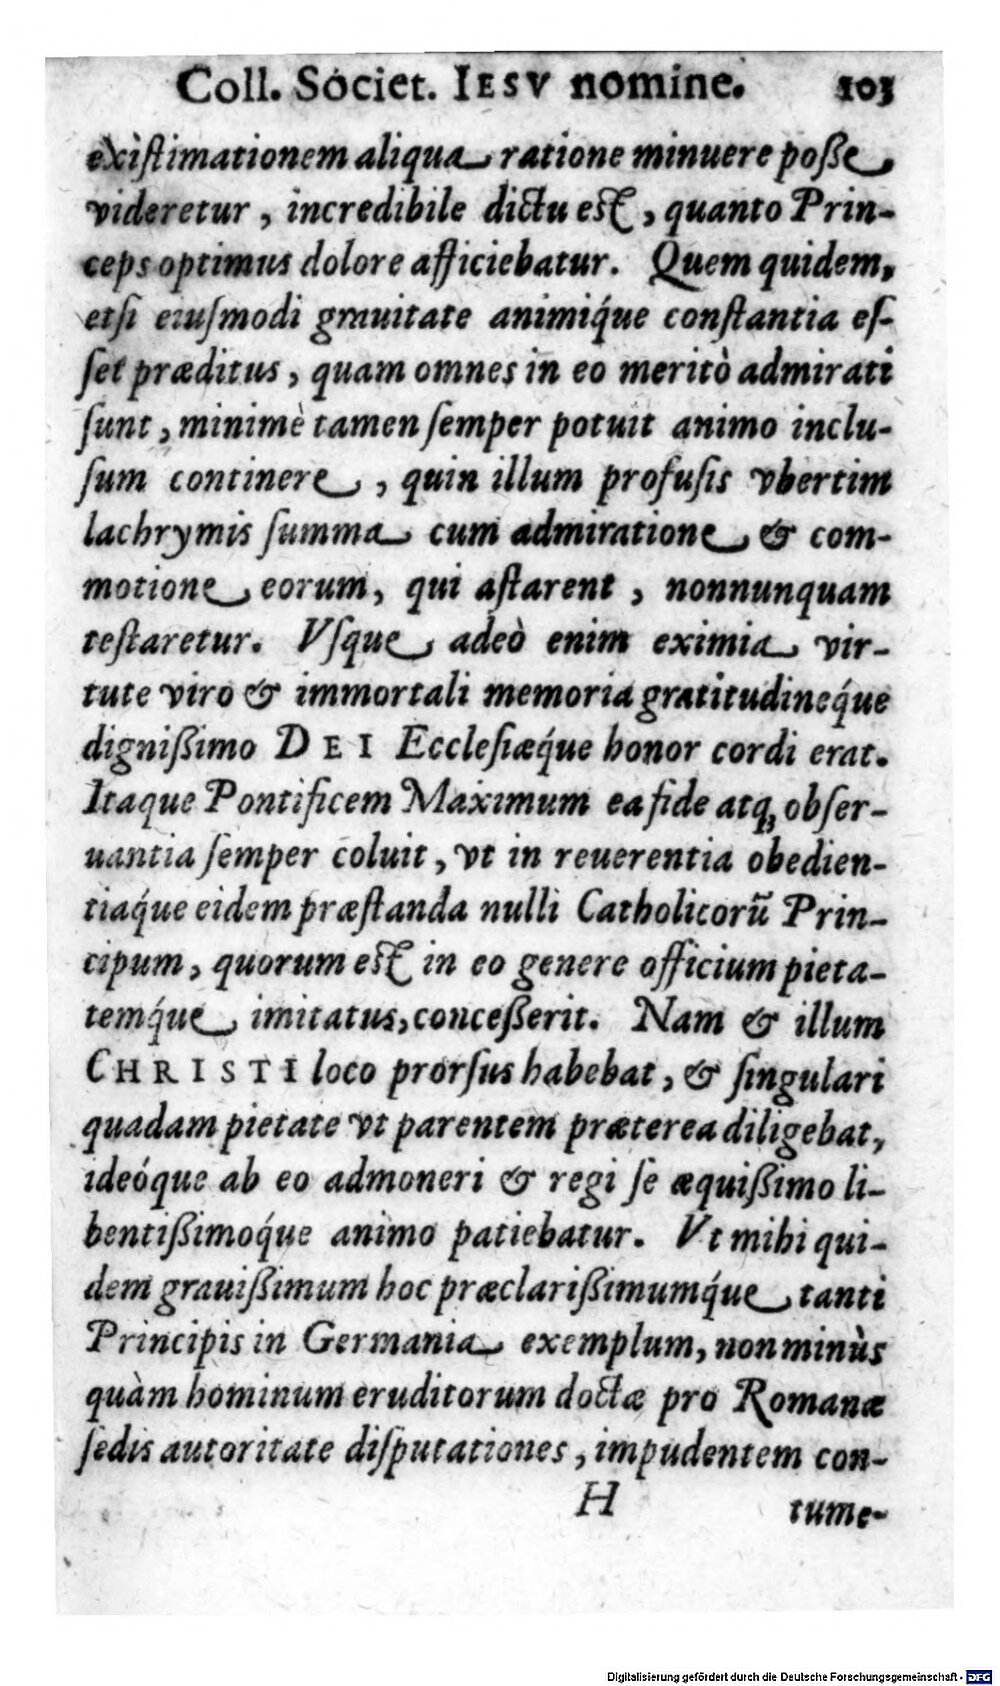 Coll. Societ. IESV nomine. 103
exiſtimationem aliqua ratione minuere poße,
videretur, incredibile dictu est, quanto Prin-
ceps optimus dolore afficiebatur. Quem quidem,
etſi eiuſmodi grauitate animiq́ue conſtantia eſ-
ſet præditus, quam omnes in eo meritò admirati
ſunt, minimè tamen ſemper potuit animo inclu-
ſum continere, quin illum profuſis vbertim
lachrymis ſumma cum admiratione & com-
motione eorum, qui aſtarent, nonnunquam
teſtaretur. Vſque adeò enim eximia vir-
tute viro & immortali memoria gratitudineq́ue
dignißimo DEI Eccleſiæq́ue honor cordi erat.
Itaque Pontificem Maximum ea fide atq; obſer-
uantia ſemper coluit, vt in reuerentia obedien-
tiaq́ue eidem præſtanda nulli Catholicorũ Prin-
cipum, quorum est in eo genere officium pieta-
temq́ue imitatus, conceßerit. Nam & illum
CHRISTI loco prorſus habebat, & ſingulari
quadam pietate vt parentem præterea diligebat,
ideóque ab eo admoneri & regi ſe æquißimo li-
bentißimoq́ue animo patiebatur. Vt mihi qui-
dem grauißimum hoc præclarißimumq́ue tanti
Principis in Germania exemplum, non minùs
quàm hominum eruditorum doctæ pro Romanæ
ſedis autoritate diſputationes, impudentem con-
H tume-
Digitalisierung gefördert durch die Deutsche Forschungsgemeinschaft - DFG